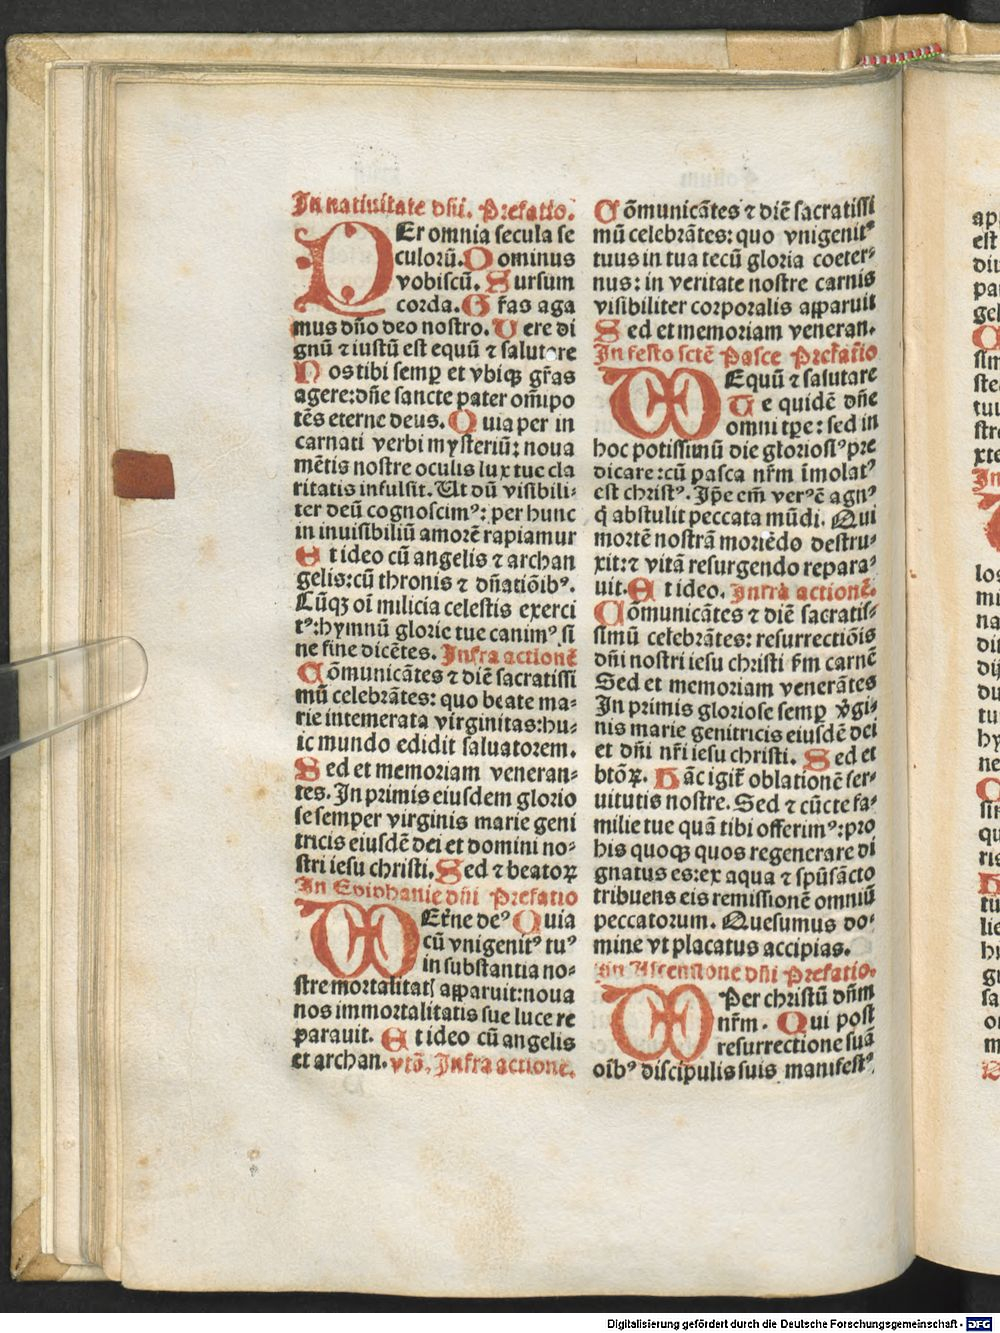 In natiuitate dñi. Prefatio.
PEr omnia secula se
culorũ. Dominus
vobiscũ. Sursum
corda. Grãs aga
mus dño deo nostro. Uere di
gnũ ⁊ iustũ est equũ ⁊ salutare
Nos tibi semꝑ et vbiqꝫ grãs
agere: dñe sancte pater om̃ipo
tẽs eterne deus. Quia per in
carnati verbi mysteriũ: noua
mẽtis nostre oculis lux tue cla
ritatis infulsit. Ut dũ visibili⸗
ter deũ cognoscimꝰ: per hunc
in inuisibiliũ amorẽ rapiamur
Et ideo cũ angelis ⁊ archan
gelis: cũ thronis ⁊ dñatiõibꝰ.
Cũqꝫ oĩ milicia celestis exerci
tꝰ: hymnũ glorie tue canimꝰ si
ne fine dicẽtes. Infra actionẽ
Cõmunicãtes ⁊ diẽ sacratissi
mũ celebrãtes: quo beate ma⸗
rie intemerata virginitas: hu⸗
ic mundo edidit saluatorem.
Sed et memoriam veneran⸗
tes. In primis eiusdem glorio
se semper virginis marie geni
tricis eiusdẽ dei et domini no⸗
stri iesu christi. Sed ⁊ beatoꝝ
In Epiphanie dñi Prefatio
VEt̃ne deꝰ Quia
cũ vnigenitꝰ tuꝰ
in substantia no⸗
stre mortalitatꝭ apparuit: noua
nos immortalitatis sue luce re
parauit. Et ideo cũ angelis
et archan. vtõ. Infra actione.
Cõmunicãtes ⁊ diẽ sacratissi
mũ celebrãtes: quo vnigenitꝰ
tuus in tua tecũ gloria coeter⸗
nus: in veritate nostre carnis
visibiliter corporalis apparuit
Sed et memoriam veneran.
In festo sctẽ Pasce Prefatio
VEquũ ⁊ salutare
Te quidẽ dñe
omni tꝑe: sed in
hoc potissimũ die gloriosiꝰ pre
dicare: cũ pasca nr̃m ĩmolatꝰ
est christꝰ. Ip̃e em̃ verꝰ ẽ agnꝰ
q̃ abstulit peccata mũdi. Qui
mortẽ nostrã moriẽdo destru⸗
xit: ⁊ vitã resurgendo repara⸗
uit. Et ideo. Infra actionẽ.
Cõmunicãtes ⁊ diẽ sacratis⸗
simũ celebrãtes: resurrectiõis
dñi nostri iesu christi f̃m carnẽ
Sed et memoriam venerãtes
In primis gloriose semꝑ v̾gi⸗
nis marie genitricis eiusdẽ dei
et dñi nr̃i iesu christi. Sed et
btõꝝ. Hãc igit̃ oblationẽ ser⸗
uitutis nostre. Sed ⁊ cũcte fa⸗
milie tue quã tibi offerimꝰ: pro
his quoqꝫ quos regenerare di
gnatus es: ex aqua ⁊ spũsãcto
tribuens eis remissionẽ omniũ
peccatorum. Quesumus do⸗
mine vt placatus accipias.
In Ascensione dñi Prefatio.
VPer christũ dñm
nr̃m. Qui post
resurrectione suã
oĩbꝰ discipulis suis manifestꝰ
Digitalisierung gefördert durch die Deutsche Forschungsgemeinschaft - DFG